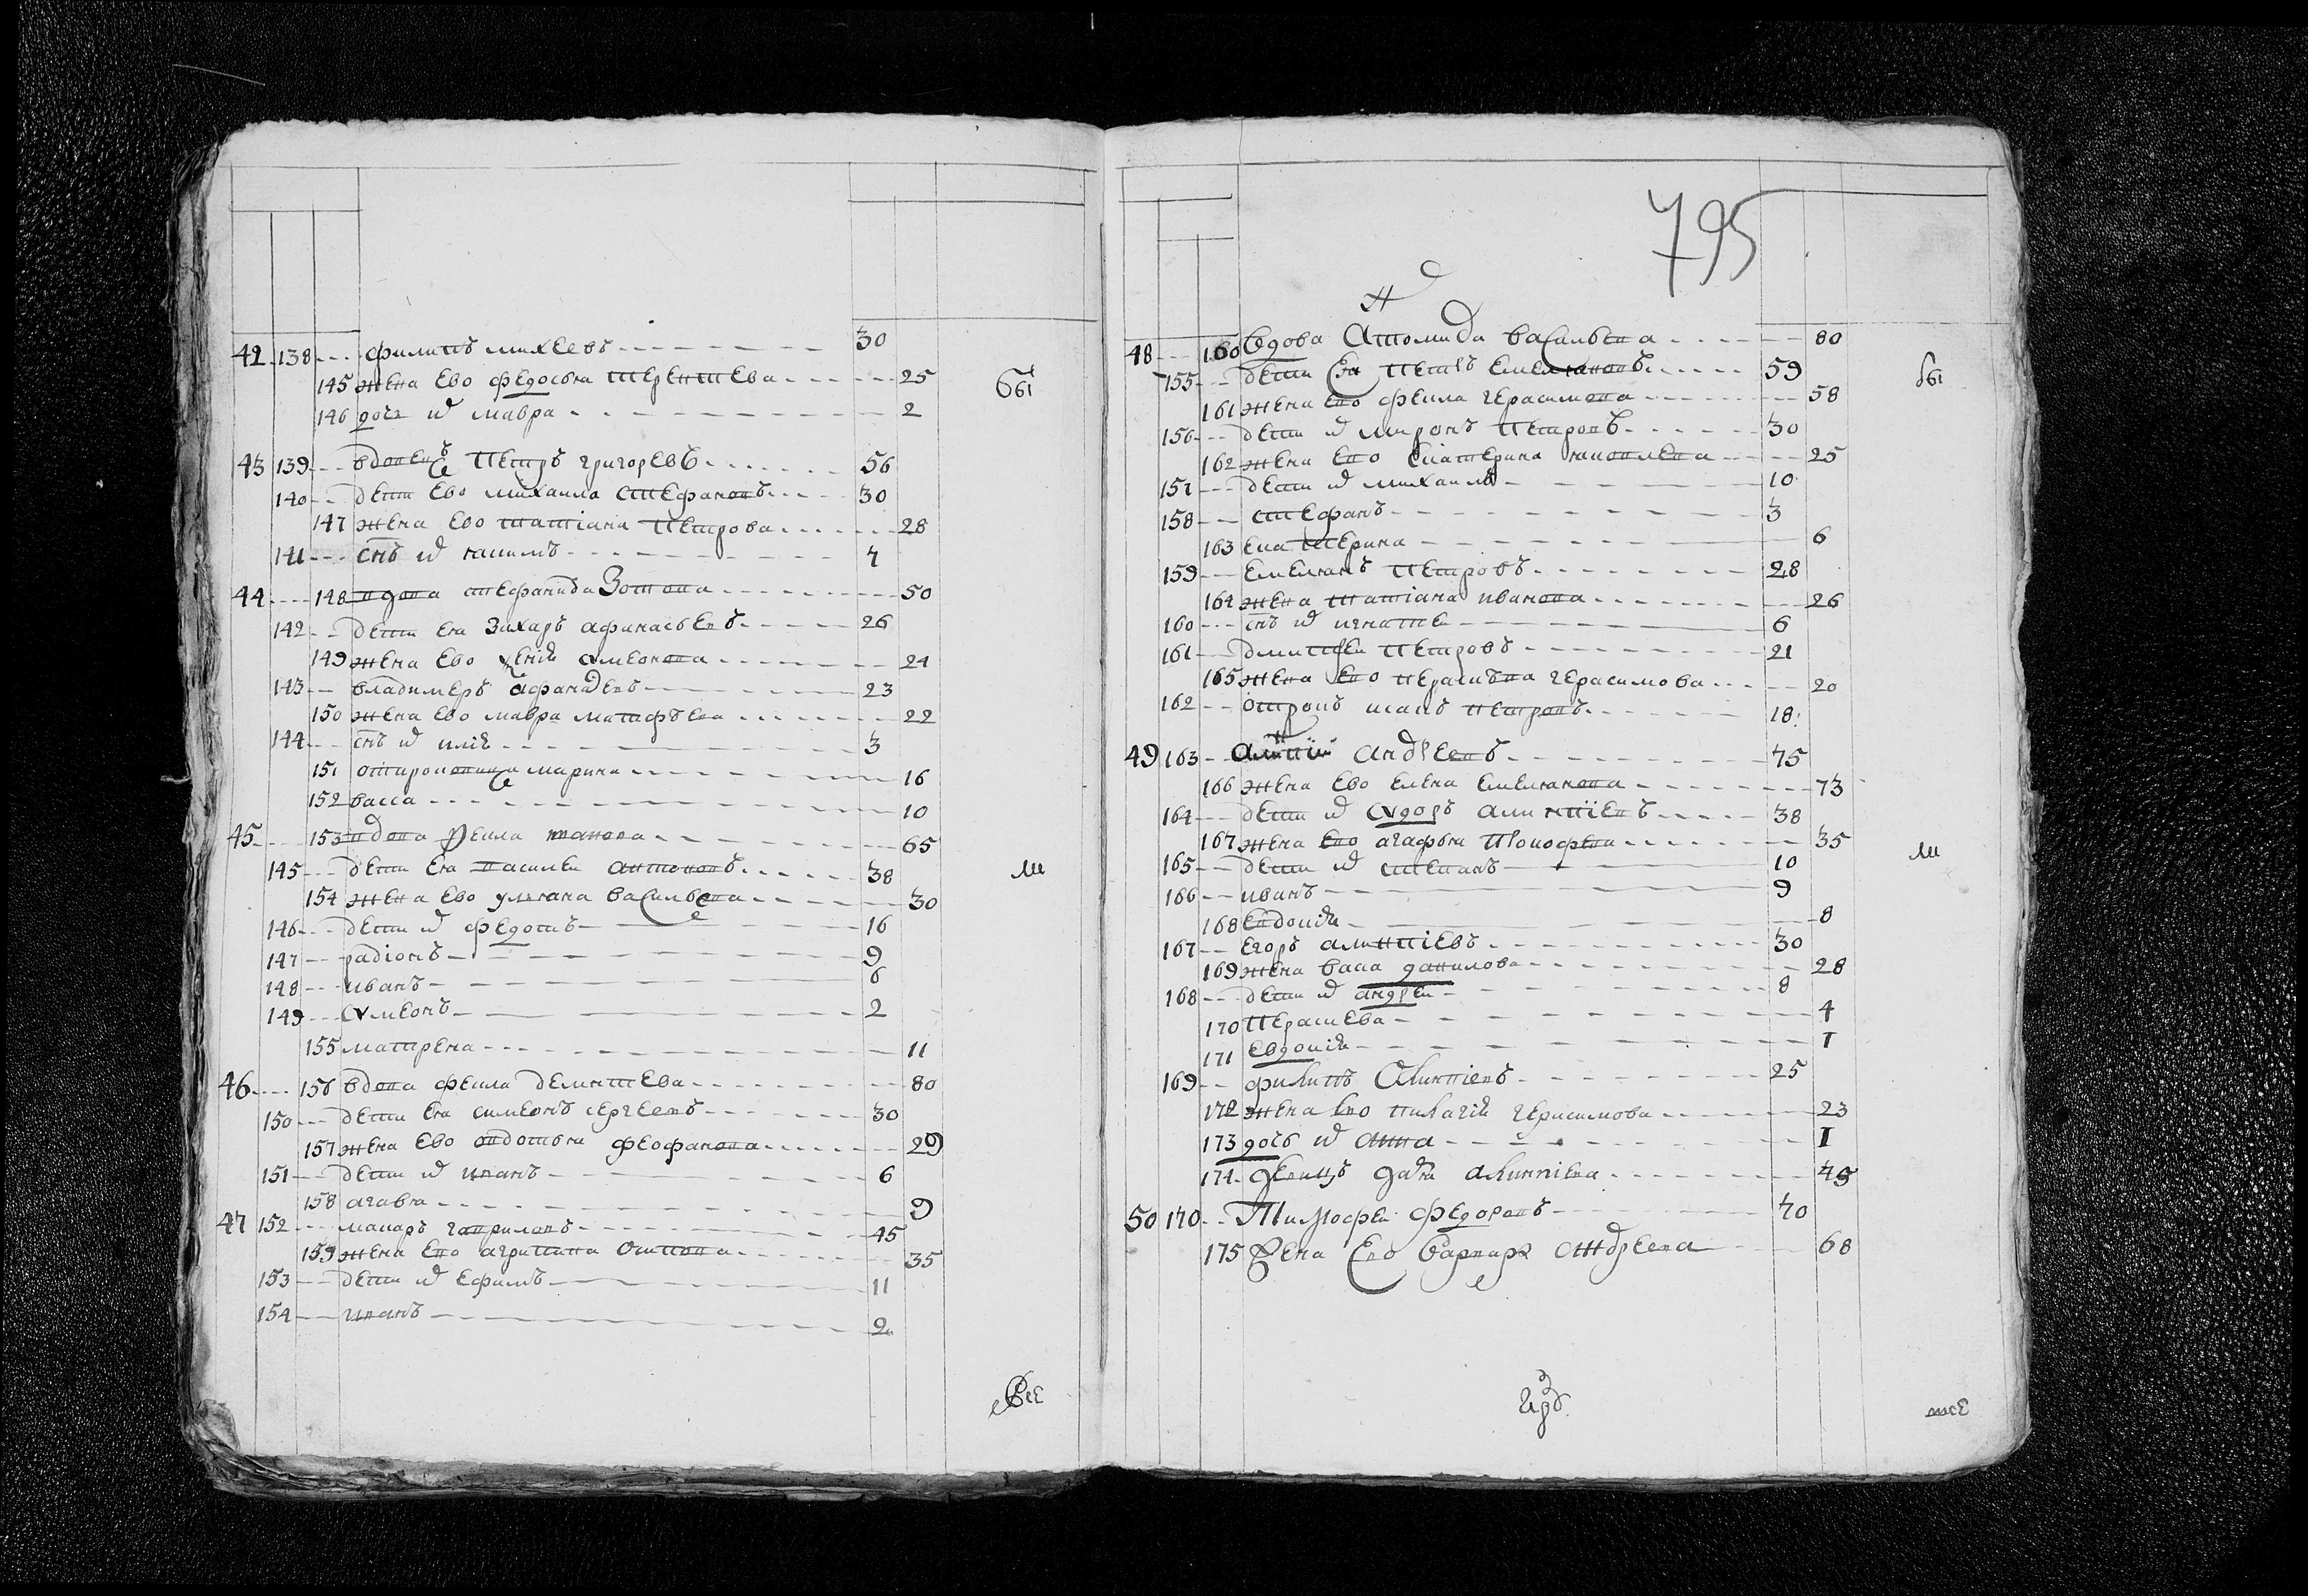 42 138 филипъ михеевъ 30
145 жена ево федосья терентева 25
146 дочь их мавра 2
43 139 вдовецъ петръ григоревъ 56
140 дети ево михаила стефановъ 30
147 жена ево татіана петрова 28
141 снъ их 4
44 148 вдова стефанида Зотова 50
142 дети ея Захаръ афанасьевъ 26
149 жена ево 24
143 владимеръ 23
150 жена ево мавра матфѣева 22
144 снъ их илія 3
151 марина 16
152 васса 10
45 153 вдова 65
145 дети ея василеи антоновъ 38
154 жена ево ульяна васильева 30
146 дети их федотъ 16
147 радіонъ 9
148 иванъ 6
149 сѵмеонъ 2
155 матрена 11
46 156 вдова фекла дементева 80
150 дети ея симеонъ сергеевъ 30
157 жена ево авдотья феофанова 29
151 дети их иванъ 6
158 агавья 9
47 152 макаръ гавриловъ 45
159 жена ево агрипина осипова 35
153 дети их ефимъ 11
154 иванъ 2
бы
ли
Все
795
48 160 вдова васильева 80
155 дети ея петръ емельяновъ 59
161 жена ево фекла герасимова 58
156 дети их миронъ петровъ 30
162 жена ево екатерина 25
157 дети их михаила 10
158 стефанъ 3
163 екатерина 6
159 емельянъ петровъ 28
164 жена татіана иванова 26
160 снъ их игнатеи 6
161 дмитреи петровъ 21
165 жена ево герасимова 20
162 петровъ 18
49 163 андреевъ 75
166 жена ево елена емельянова 73
164 дети их сѵдоръ алимпіевъ 38
167 жена ево агафья 35
165 дети их степанъ 10
166 иванъ 9
168 евдокія 8
167 егоръ алимпіевъ 30
169 жена васа данилова 28
168 дети их андреи 8
170 4
171 евдокія 1
169 филипъ алимпіевъ 25
172 жена ево пилагія герасимова 23
173 дочь их анна 1
174 алимпіева 45
50 170 Тимофеи федоровъ 70
175 Жена ево варвара андреева 68
бы
ли